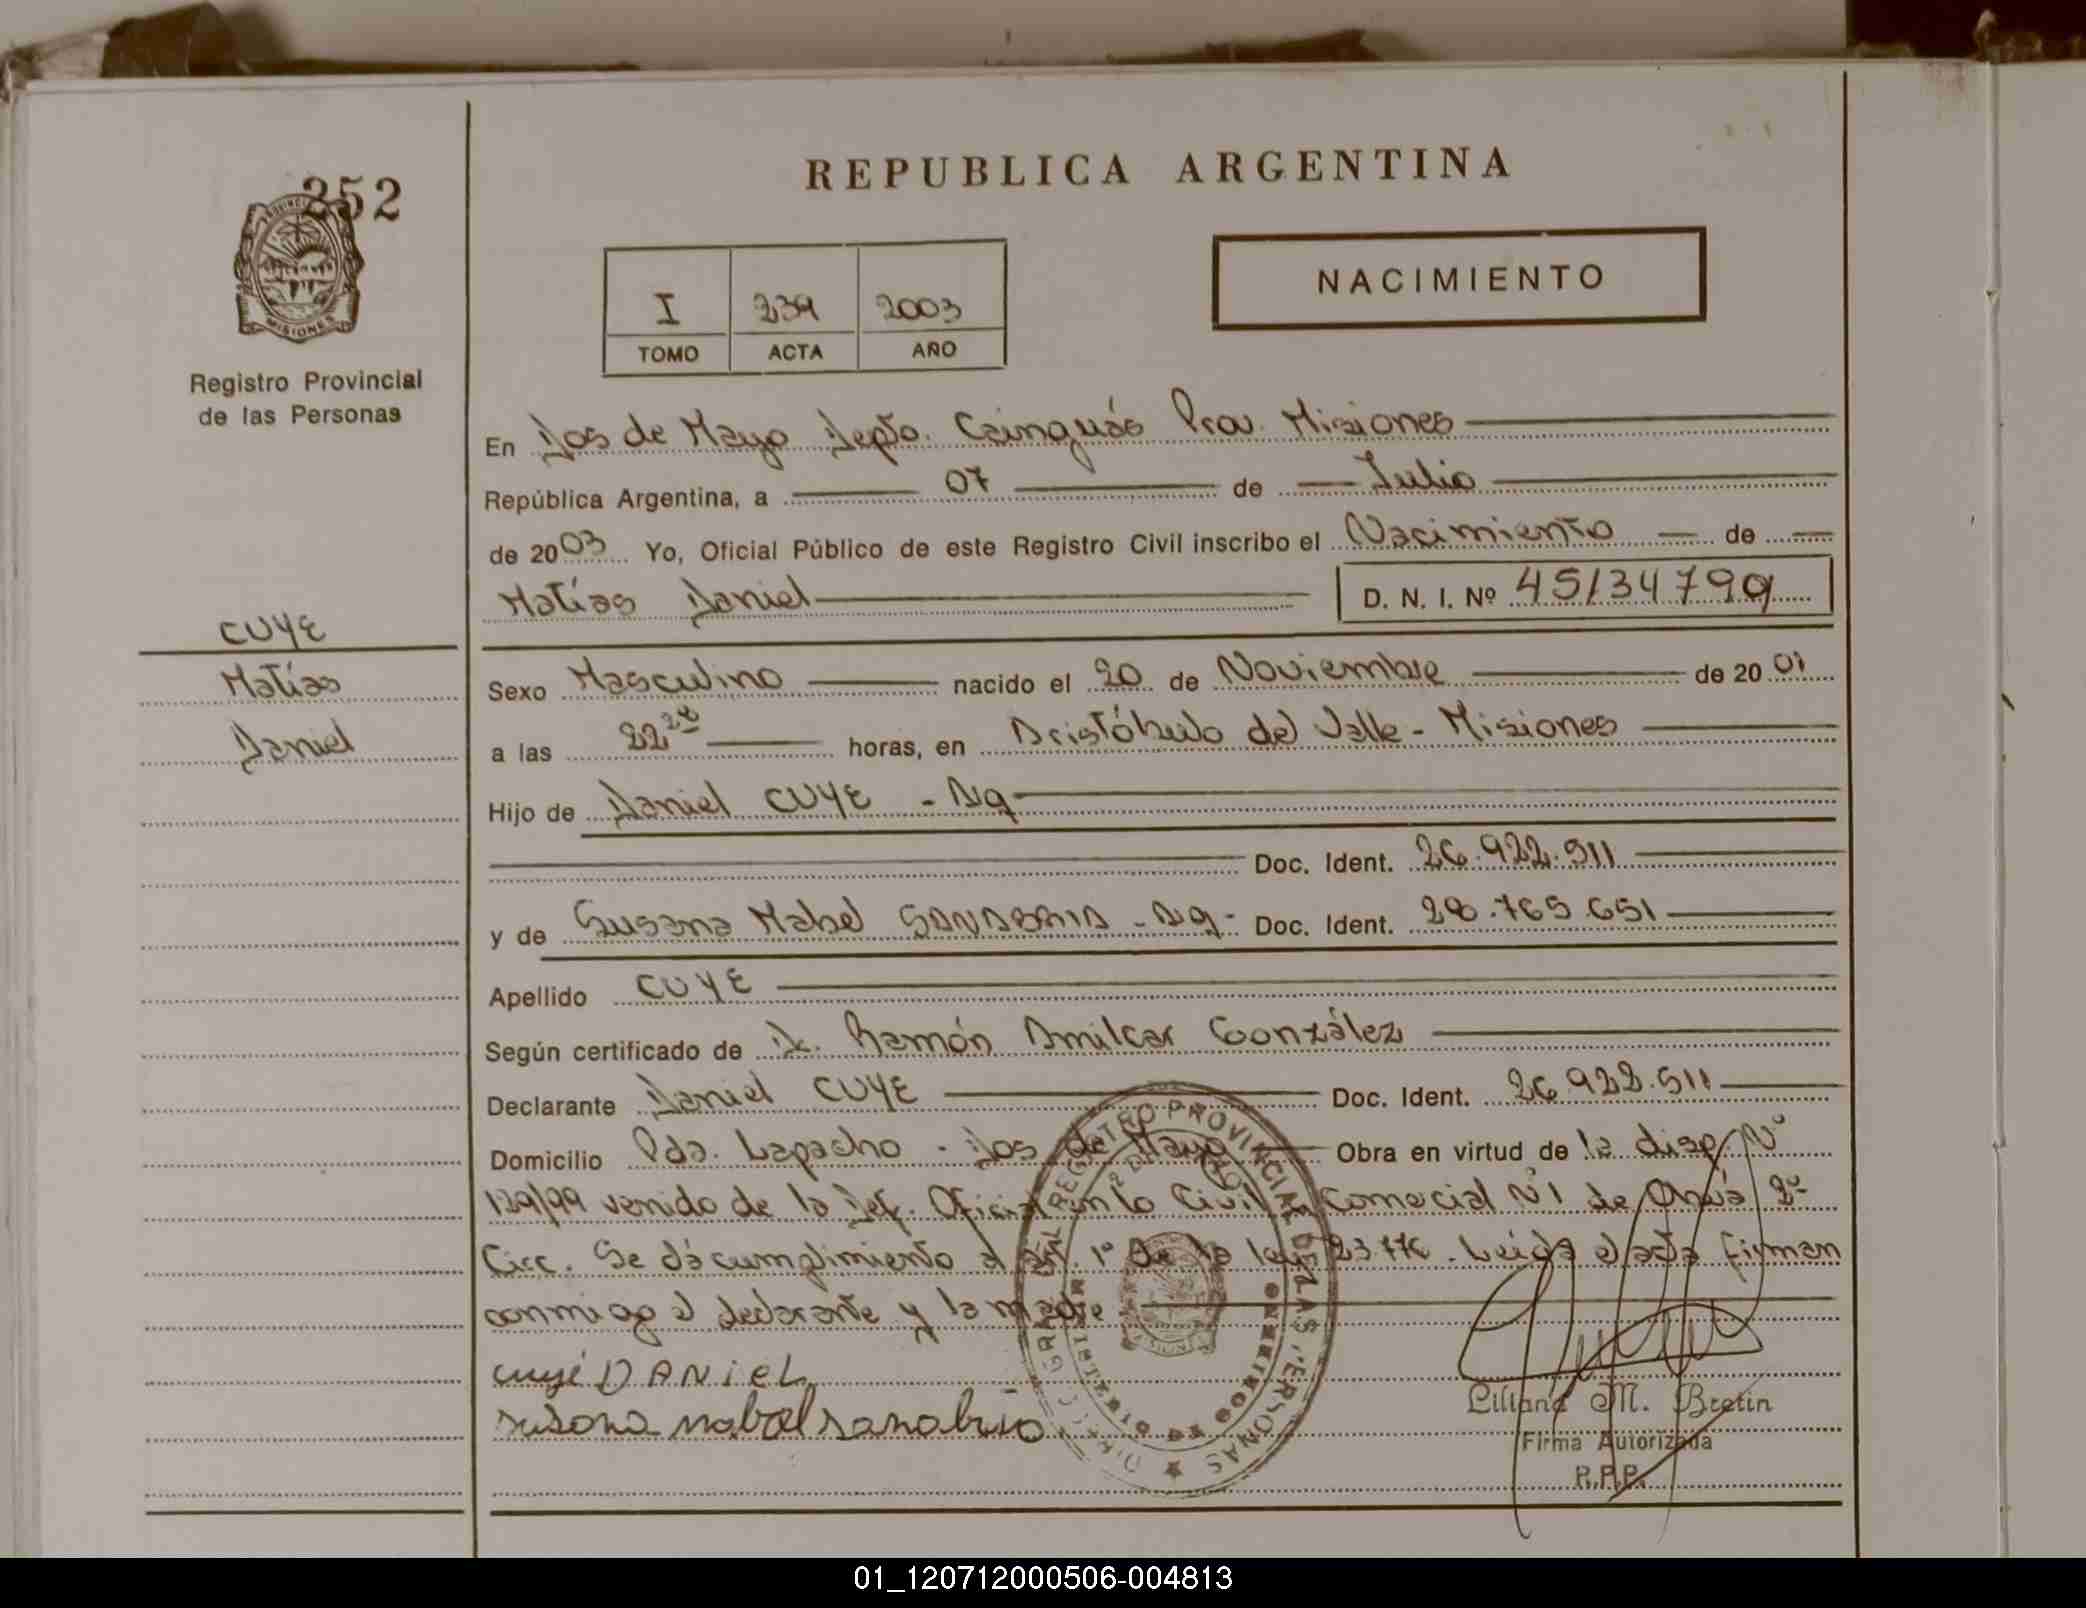 REPUBLICA ARGENTINA
252
PROVINCIA
MISIONES
Registro Provincial
de las Personas
I 239 2003
TOMO ACTA AÑO
NACIMIENTO
En Dos de Mayo Depto. Cainguás Prov. Misiones
República Argentina, a 07 de Julio
de 2003 Yo, Oficial Público de este Registro Civil inscribo el Nacimiento de
Matías Daniel D. N. I. Nº 45134799
CUYE
Matías
Daniel
Sexo Masculino nacido el 20 de Noviembre de 2001
a las 22 horas, en Aristóbulo del Valle - Misiones
Hijo de Daniel CUYE - Arg
Doc. Ident. 26.922.511
y de Susana Mabel SANABRIA - Arg - Doc. Ident. 28.765.651
Apellido CUYE
Según certificado de Dr. Ramón Amilcar González
Declarante Daniel CUYE Doc. Ident. 26.922.511
Domicilio Pda. Lapacho - Dos de Mayo Obra en virtud de la disp. Nº
129/99 venido de la Def. Oficial en lo Civil Comercial Nº1 de Oberá 2º
Circ. Se dá cumplimiento al 1º de la ley 23776. Leída el acta firman
conmigo el declarante y la madre
cuyé DANiEL
susana mabel sanabria
REGISTRO PROVINCIAL DE LAS PERSONAS
Liliana M. Bretin
Firma Autorizada
R.P.P.
01_120712000506-004813